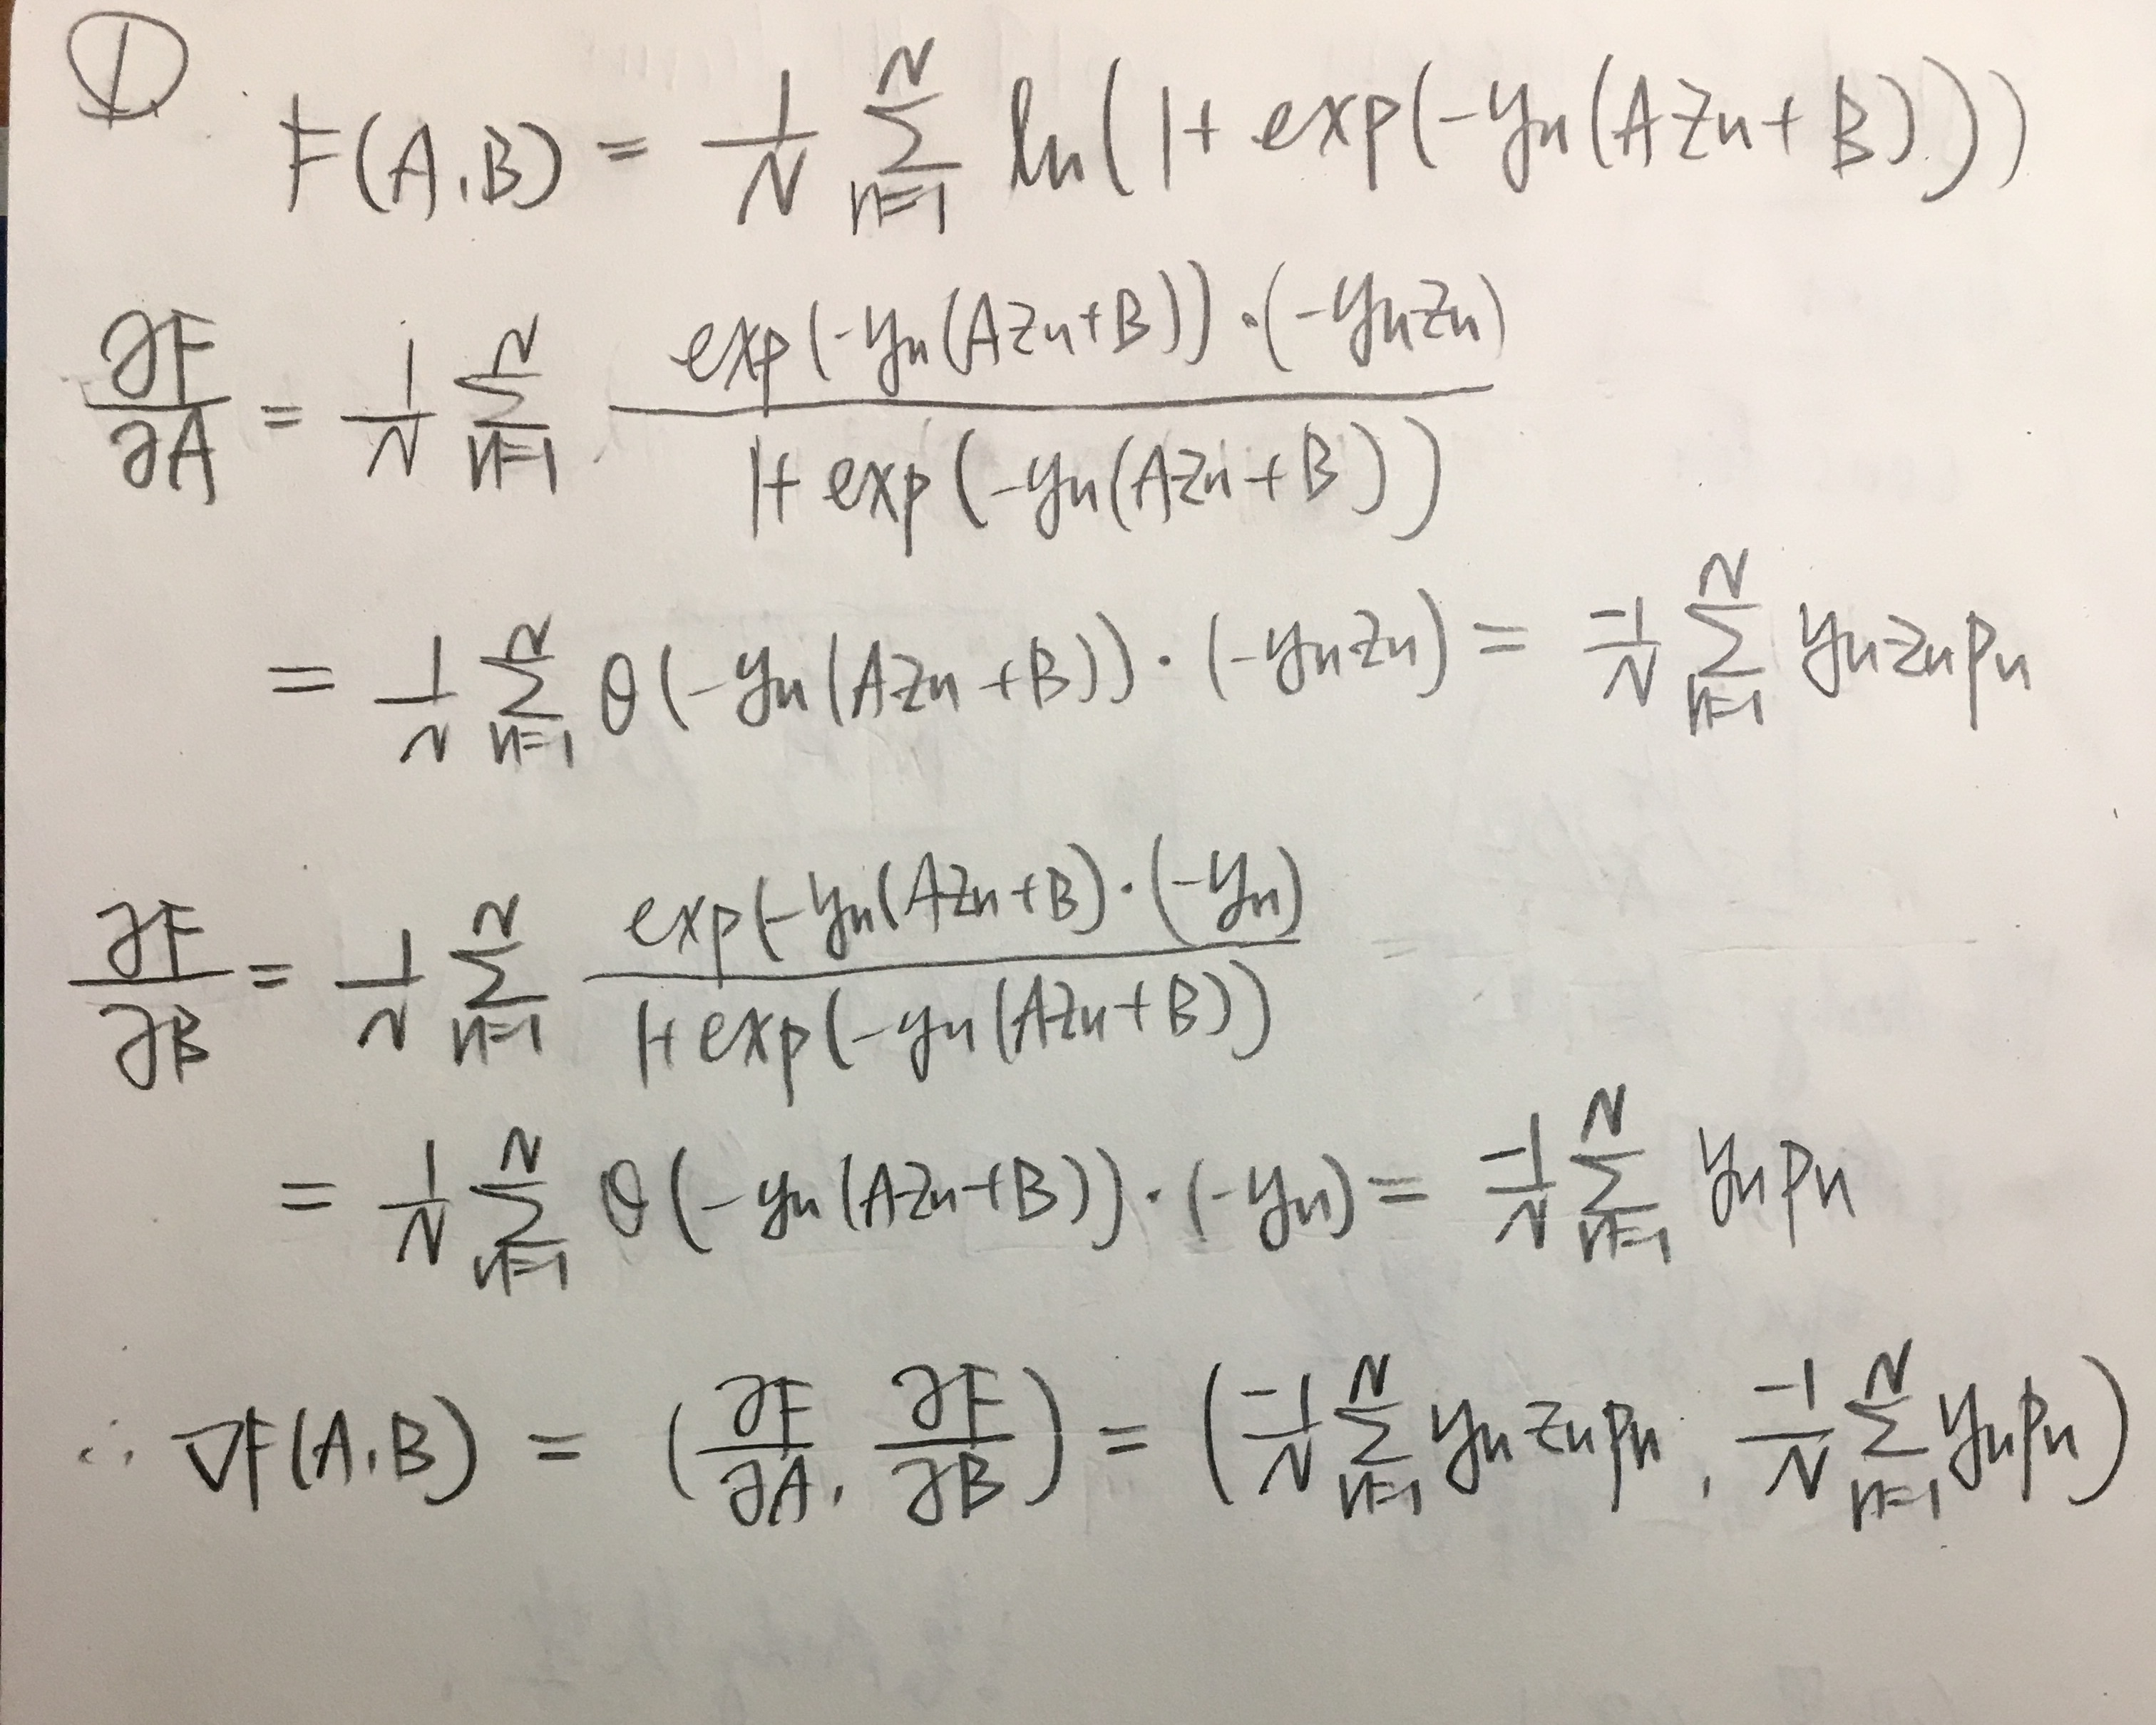 ①
F(A,B) = \frac{1}{N} \sum_{n=1}^{N} \ln(1 + exp(-y_n(Az_n + B)))
\frac{∂F}{∂A} = \frac{1}{N} \sum_{n=1}^{N} \frac{exp(-y_n(Az_n+B)) · (-y_n z_n)}{1 + exp(-y_n(Az_n + B))}
= \frac{1}{N} \sum_{n=1}^{N} θ(-y_n(Az_n + B)) · (-y_n z_n) = \frac{-1}{N} \sum_{n=1}^{N} y_n z_n p_n
\frac{∂F}{∂B} = \frac{1}{N} \sum_{n=1}^{N} \frac{exp(-y_n(Az_n+B) · (-y_n)}{1 + exp(-y_n(Az_n + B))}
= \frac{1}{N} \sum_{n=1}^{N} θ(-y_n(Az_n+B)) · (-y_n) = \frac{-1}{N} \sum_{n=1}^{N} y_n p_n
∴ ∇F(A,B) = (\frac{∂F}{∂A}, \frac{∂F}{∂B}) = (\frac{-1}{N} \sum_{n=1}^{N} y_n z_n p_n, \frac{-1}{N} \sum_{n=1}^{N} y_n p_n)